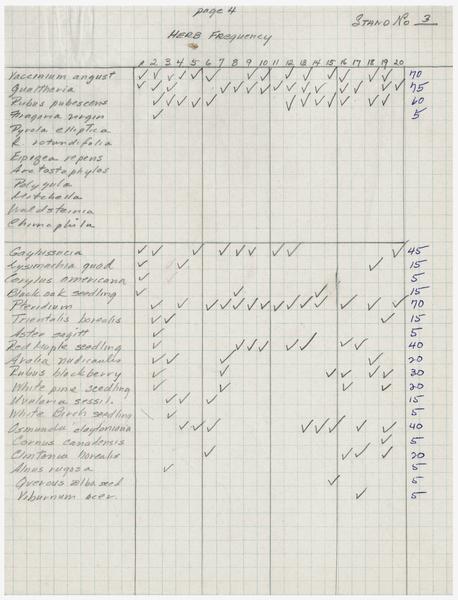 page 4
Stand No 3
Herb Frequency
1 2 3 4 5 6 7 8 9 10 11 12 13 14 15 16 17 18 19 20
Vaccinium angust ✓ ✓ ✓ ✓ ✓ ✓ ✓ ✓ ✓ ✓ ✓ ✓ ✓ ✓ 70
Gualtheria ✓ ✓ ✓ ✓ ✓ ✓ ✓ ✓ ✓ ✓ ✓ ✓ ✓ ✓ ✓ 75
Rubus pubescens ✓ ✓ ✓ ✓ ✓ ✓ ✓ ✓ ✓ ✓ ✓ ✓ 60
Fragaria virgin ✓ 5
Pyrola elliptica
R. rotundifolia
Epigea repens
Arctostaphylos
Polygula
Mitchella
Waldsteinia
Chimaphila
Gaylussacia ✓ ✓ ✓ ✓ ✓ ✓ ✓ ✓ ✓ 45
Lysimachia quad ✓ ✓ ✓ 15
Corylus americana ✓ 5
Black oak seedling ✓ ✓ ✓ 15
Pteridium ✓ ✓ ✓ ✓ ✓ ✓ ✓ ✓ ✓ ✓ ✓ ✓ ✓ ✓ 70
Trientalis borealis ✓ ✓ ✓ 15
Aster sagitt ✓ 5
Red Maple seedling ✓ ✓ ✓ ✓ ✓ ✓ ✓ ✓ 40
Aralia nudicaulis ✓ ✓ ✓ ✓ 20
Rubus blackberry ✓ ✓ ✓ ✓ ✓ ✓ 30
White pine seedling ✓ ✓ ✓ ✓ 20
Uvularia sessil. ✓ ✓ ✓ 15
White Birch seedling ✓ 5
Osmunda claytoniana ✓ ✓ ✓ ✓ ✓ ✓ ✓ ✓ 40
Cornus canadensis ✓ 5
Clintonia borealis ✓ ✓ ✓ ✓ 20
Alnus rugosa ✓ 5
Quercus alba seed ✓ 5
Viburnum acer. ✓ 5